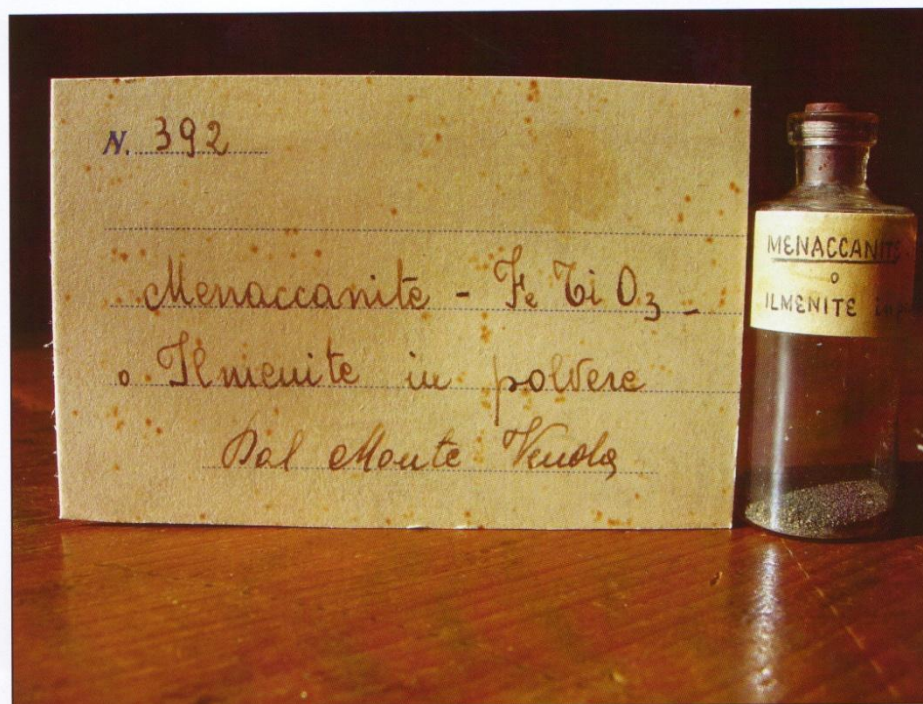 N. 392
Menaccanite - Fe Ti O3 -
o Ilmenite in polvere
Dal Monte Venda
MENACCANITE
o
ILMENITE